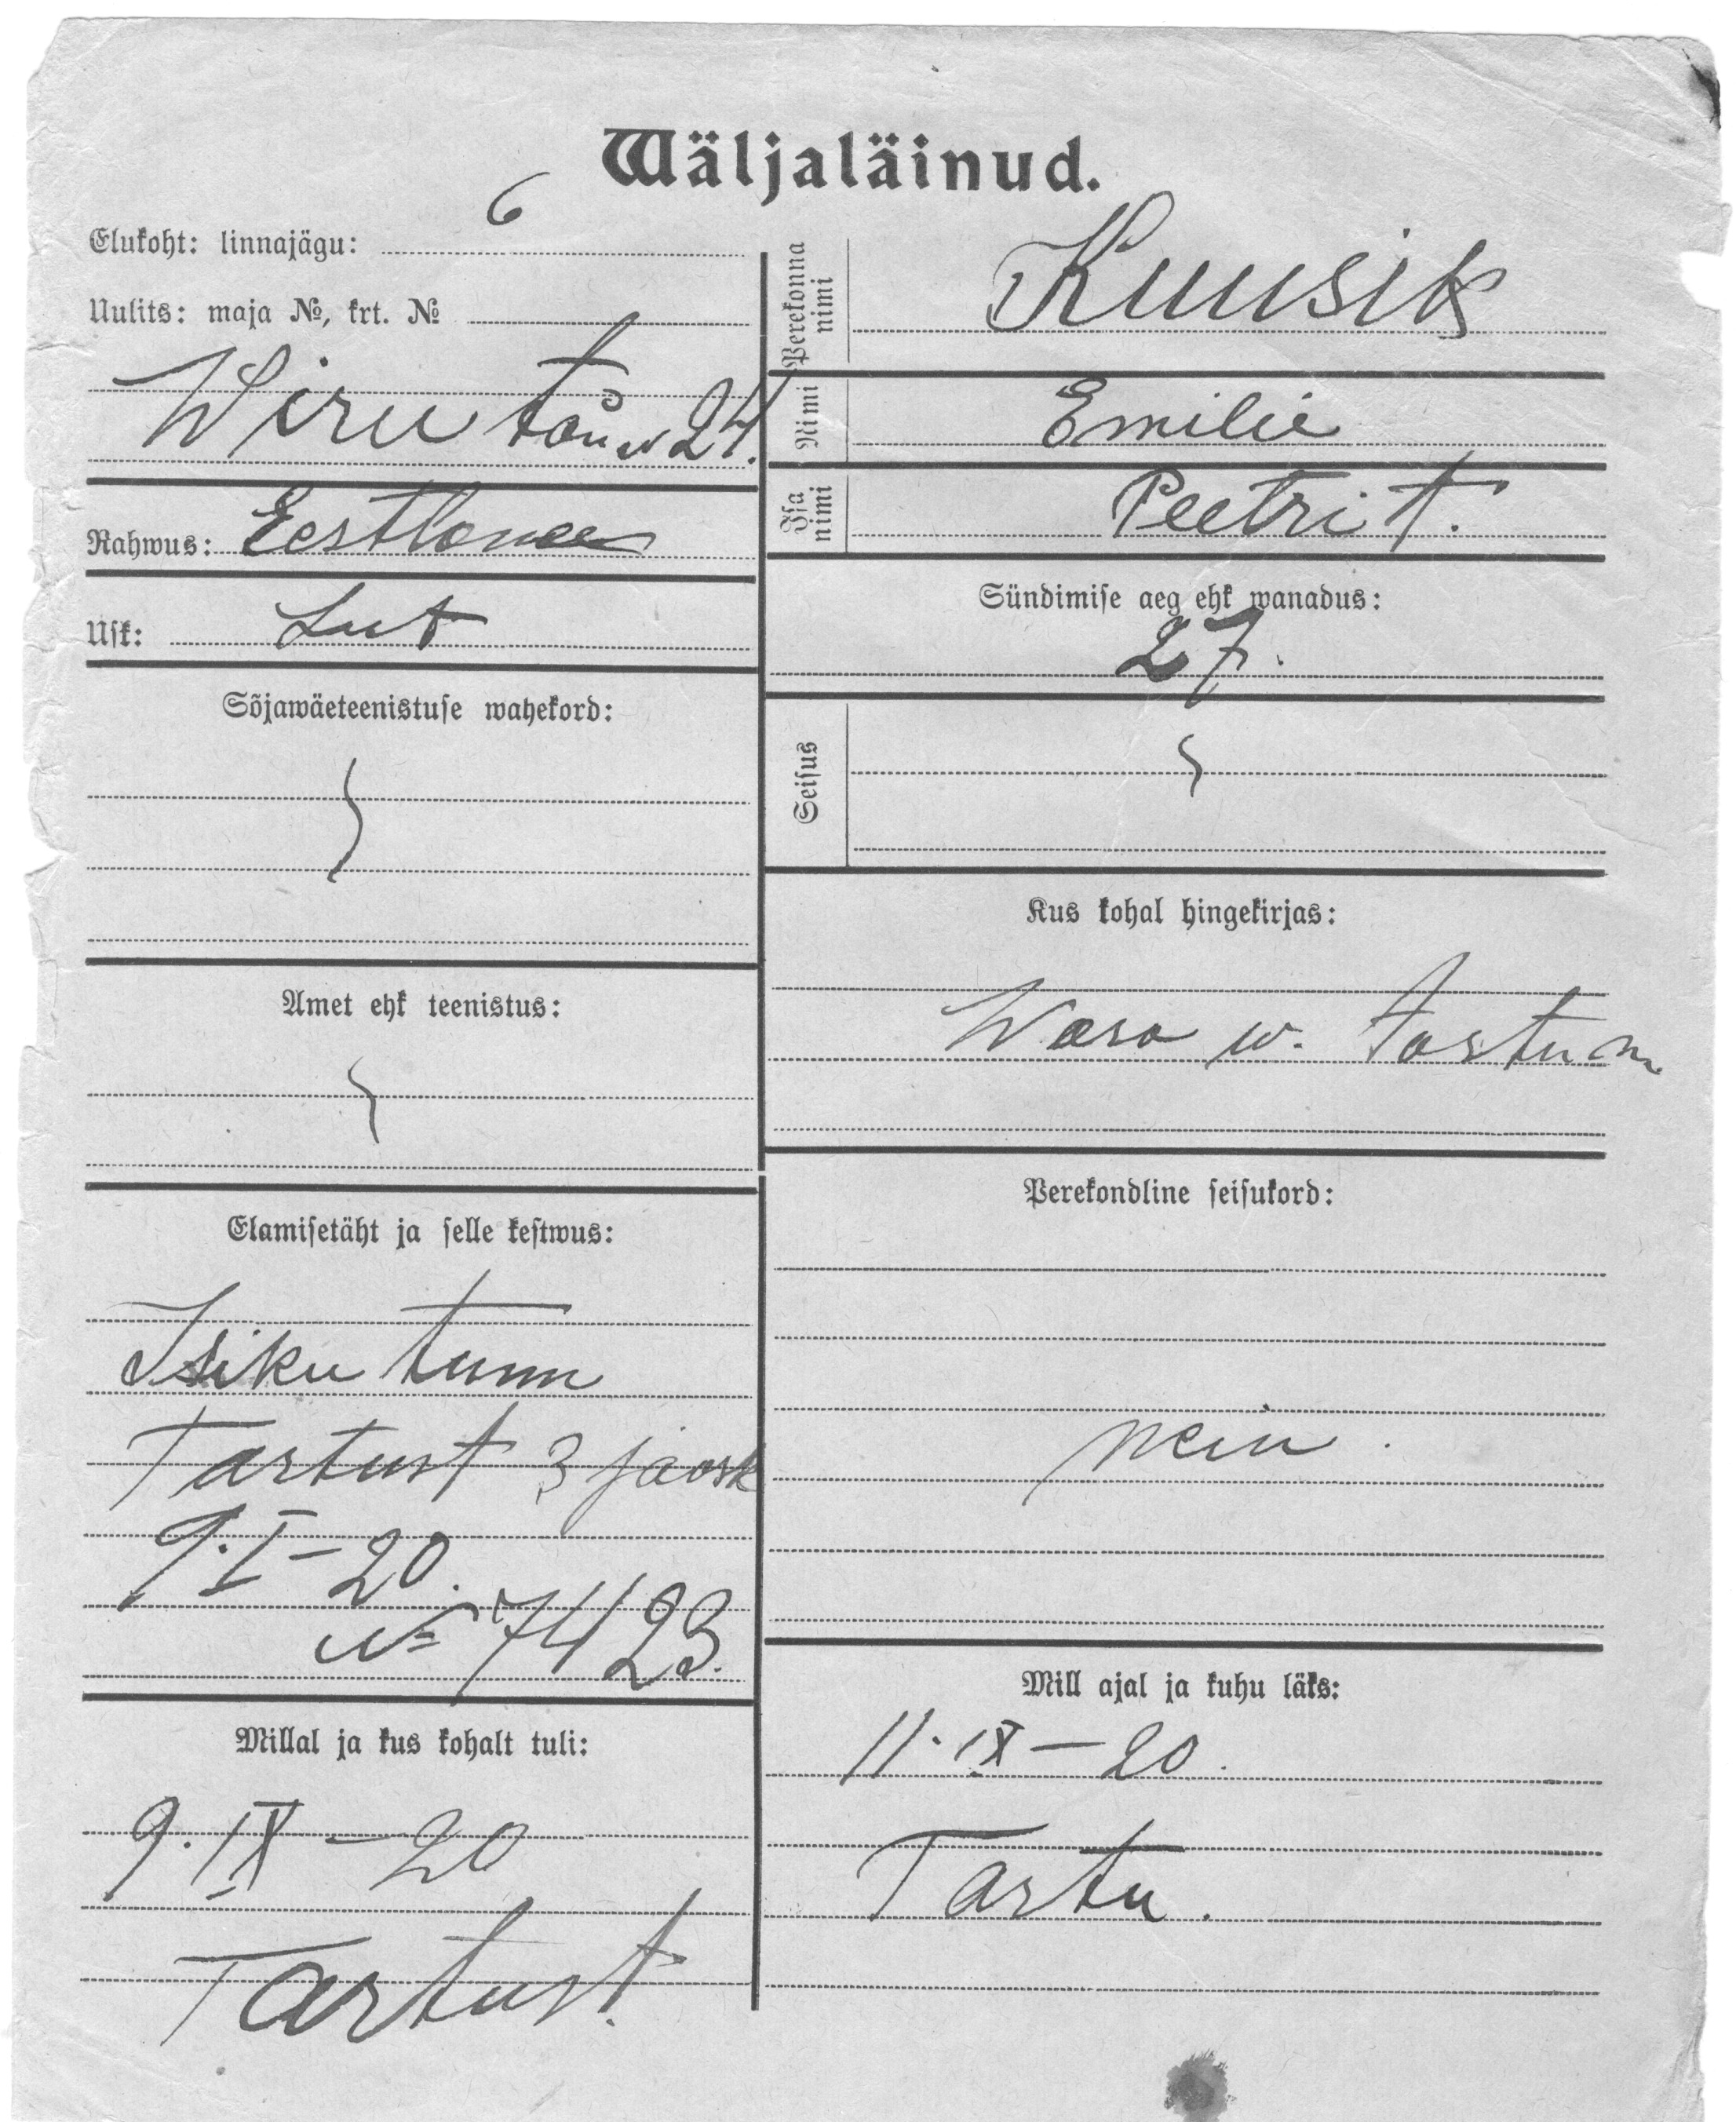 Wäljaläinud.
Elukoht: linnajägu: 6
Uulits: maja №, krt. №
Wiru tän № 24.
Rahwus: Eestlane
Usk: Lut
Sõjawäeteenistuse wahekord:
Amet ehk teenistus:
Elamisetäht ja selle kestwus:
Isiku tunn
Tartust 3 jaosk
9. I – 20.
№ 7423.
Millal ja kus kohalt tuli:
9. IX – 20
Tartust.
Perekonna nimi
Kuusik
Nimi
Emilie
Isa nimi
Peetri t.
Sündimise aeg ehk wanadus:
27.
Seisus
Kus kohal hingekirjas:
Wara w. Tartu m.
Perekondline seisukord:
neiu.
Mill ajal ja kuhu läks:
11. IX – 20.
Tartu.